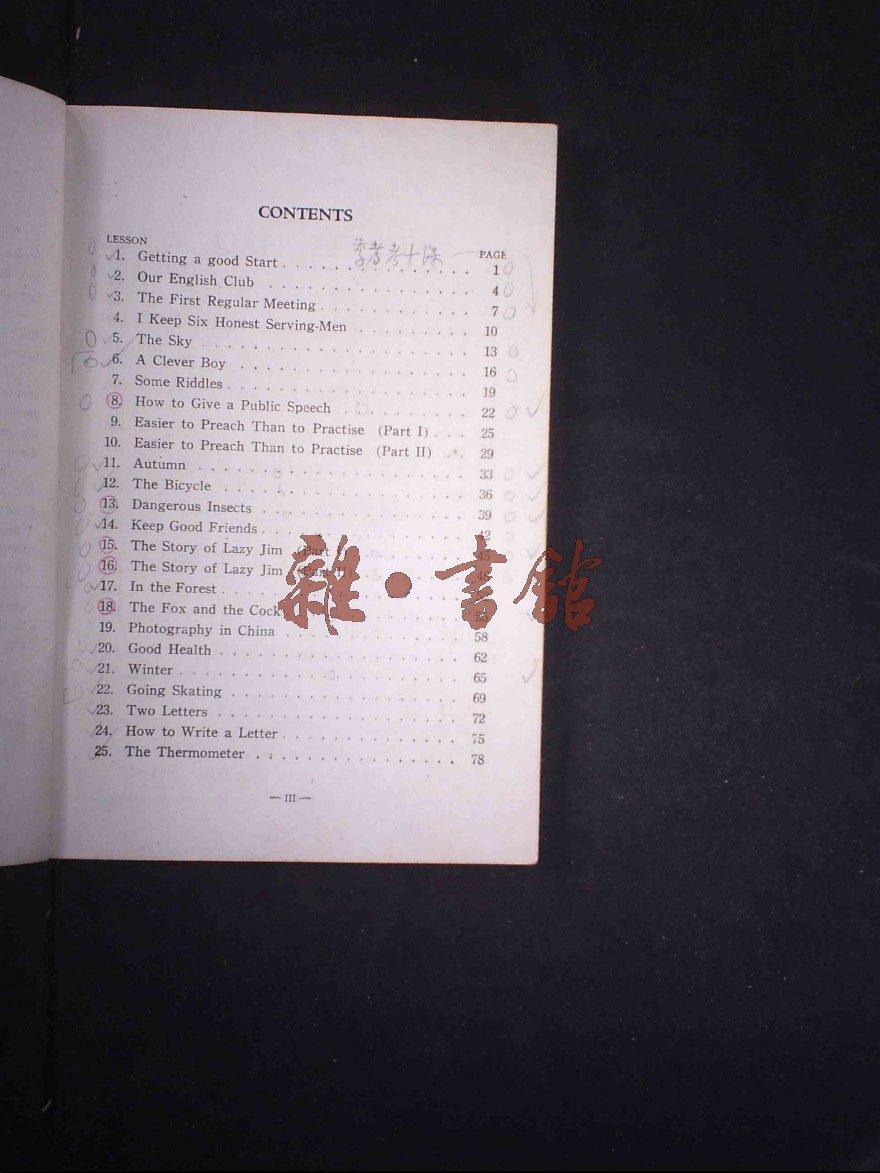 CONTENTS
LESSON PAGE
1. Getting a good Start . . . . . . . . . . . . . 1
2. Our English Club . . . . . . . . . . . . . 4
3. The First Regular Meeting . . . . . . . . . . . 7
4. I Keep Six Honest Serving-Men . . . . . . . . 10
5. The Sky . . . . . . . . . . . . . . . . . . 13
6. A Clever Boy . . . . . . . . . . . . . . . 16
7. Some Riddles . . . . . . . . . . . . . . . 19
8. How to Give a Public Speech . . . . . . . . . 22
9. Easier to Preach Than to Practise (Part I) . . . 25
10. Easier to Preach Than to Practise (Part II) . . 29
11. Autumn . . . . . . . . . . . . . . . . . . 33
12. The Bicycle . . . . . . . . . . . . . . . . 36
13. Dangerous Insects . . . . . . . . . . . . . . 39
14. Keep Good Friends . . . . . . . . . . . . . . 42
15. The Story of Lazy Jim (Part . . . . 45
16. The Story of Lazy Jim (Part II) . . . . 48
17. In the Forest . . . .
18. The Fox and the Cock
19. Photography in China . . . . . . . . . . . . 58
20. Good Health . . . . . . . . . . . . . . . . 62
21. Winter . . . . . . . . . . . . . . . . . . 65
22. Going Skating . . . . . . . . . . . . . . . 69
23. Two Letters . . . . . . . . . . . . . . . . 72
24. How to Write a Letter . . . . . . . . . . . . 75
25. The Thermometer . . . . . . . . . . . . . . 78
— III —
雜·書館